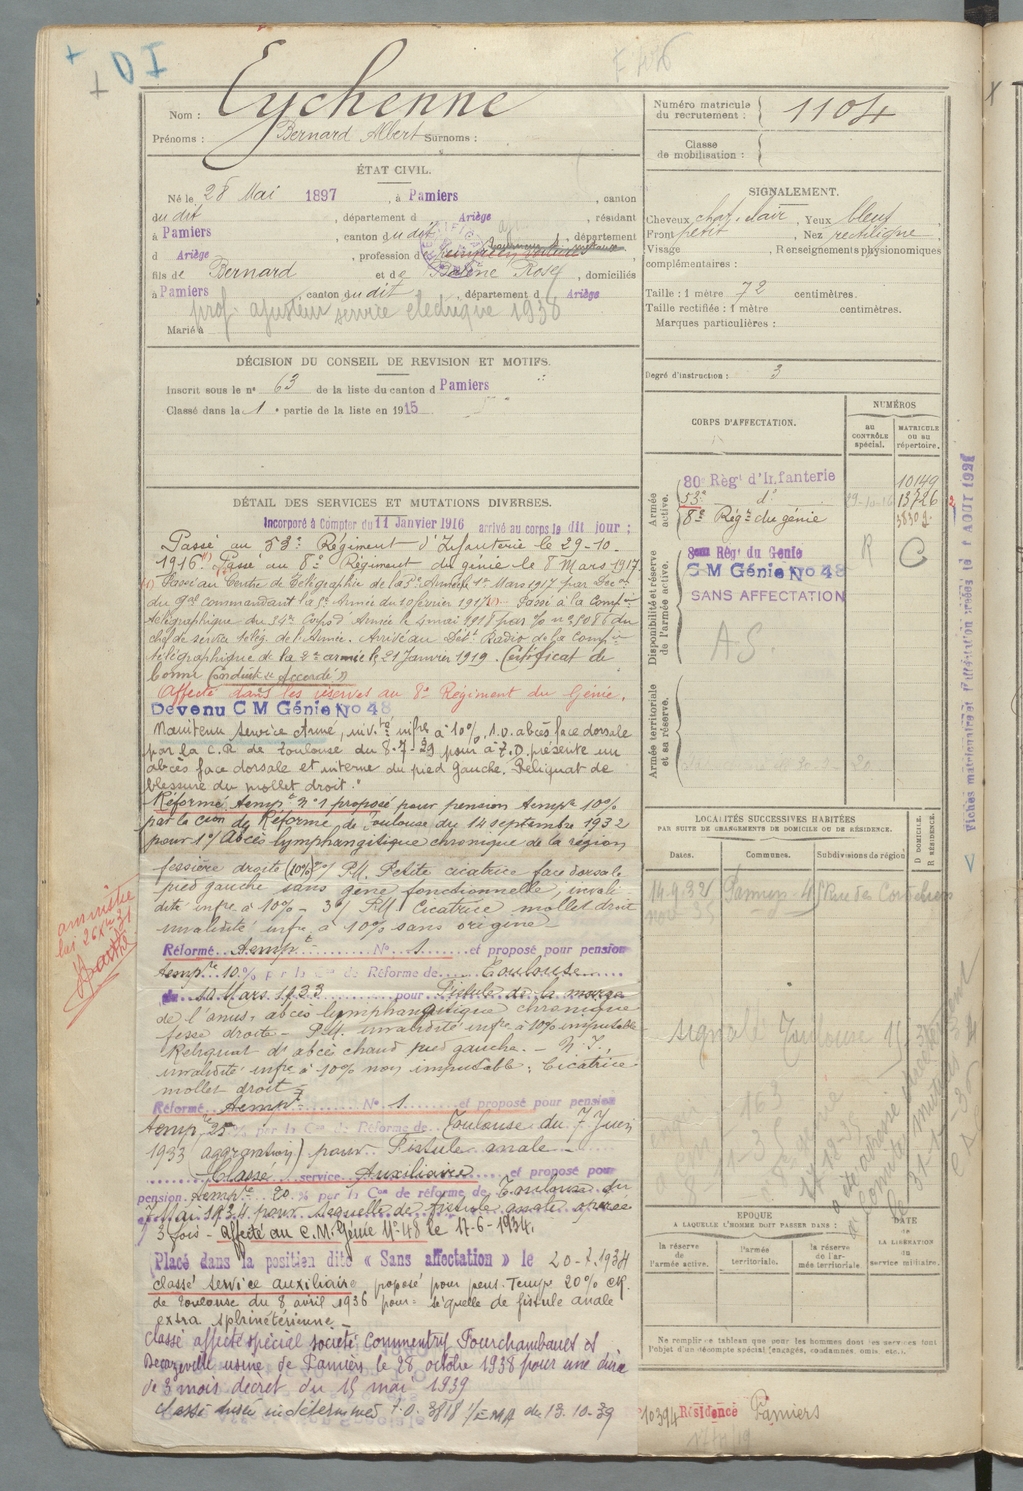 + + D I
Nom : Eychenne
Prénoms : Bernard Albert Surnoms :
ÉTAT CIVIL.
Né le 28 Mai 1897, à Pamiers, canton
du dit, département d Ariège, résidant
à Pamiers, canton du dit, département
d Ariège, profession d
fils de Bernard et de Rose, domiciliés
à Pamiers, canton du dit, département d Ariège
prof. ajusteur service électrique 1936
Marié à
DÉCISION DU CONSEIL DE REVISION ET MOTIFS.
Inscrit sous le n° 63 de la liste du canton d Pamiers
Classé dans la 1e partie de la liste en 1915
DÉTAIL DES SERVICES ET MUTATIONS DIVERSES.
Incorporé à Compter du 11 Janvier 1916 arrivé au corps le dit jour ;
Passé au 53e Régiment d'Infanterie le 29-10-
1916. Passé au 8e Régiment du génie le 8 Mars 1917
Passé au Centre de Télégraphie de la 5e Armée 1er Mars 1917 par
du Gal commandant la 5e Armée du 10 février 1917. Passé à la Compie
télégraphique du 34e Corps d'Armée le 4 mai 1918 par du
chef de service télég. de l'Armée. Arrivé au Dét. Radio de la Compie
télégraphique de la 2e armée le 21 Janvier 1919. Certificat de
bonne Conduite "Accordé"
Affecté dans les réserves au 8e Régiment du Génie.
Devenu C M Génie No 48
Maintenu Service Armé, invté infre à 10%, abcès face dorsale
par la C.R de Toulouse du 8-7-29 pour présente un
abcès face dorsale et interne du pied gauche. Reliquat de
blessure du mollet droit."
Réformé tempre n°1 proposé pour pension tempre 10%
par la cion de Réforme de Toulouse du 14 septembre 1932
pour 1°/ Abcès lymphangitique chronique de la région
fessière droite (10%) P.M. Petite cicatrice face dorsale
pied gauche sans gêne fonctionnelle, invali-
dité infre à 10% - 3°/ P.M. Cicatrice mollet droit
invalidité infre à 10% sans origine
Réformé tempre N° 1 et proposé pour pension
tempre 10 % par la Con de Réforme de Toulouse
du 10 Mars 1933 pour Fistule de la marge
de l'anus, abcès lymphangitique chronique
fesse droite - P.M. invalidité infre à 10% imputable
Reliquat d'abcès chaud pied gauche. -
invalidité infre à 10% non imputable : Cicatrice
mollet droit
Réformé tempre N° 1 et proposé pour pension
tempre 25 % par la Con de Réforme de Toulouse du 7 Juin
1933 (aggravation) pour Fistule anale
Classé service Auxiliaire et proposé pour
pension tempre 20 % par la Con de réforme de Toulouse du
7 Mai 1934 pour séquelle de fistule anale opérée
3 fois - affecté au C.M. Génie N° 48 le 17-6-1934.
Placé dans la position dite « Sans affectation » le 20-7-1934
classé service auxiliaire, proposé pour pens. Temp. 20% C.R.
de Toulouse du 8 avril 1936 pour : séquelle de fistule anale
extra sphinctérienne
Classé affecté spécial société Commentry Fourchambault et
Decazeville usine de Pamiers le 28 octobre 1938 pour une durée
de 3 mois décret du 15 mai 1939
Classé durée indéterminée I.O. 3818 1/EMA du 13-10-39
amnistié
loi 26 31
Numéro matricule
du recrutement : 1104
Classe
de mobilisation :
SIGNALEMENT.
Cheveux chat. clair, Yeux bleus
Front petit, Nez rectiligne
Visage , Renseignements physionomiques
complémentaires :
Taille : 1 mètre 72 centimètres.
Taille rectifiée : 1 mètre centimètres.
Marques particulières :
Degré d'instruction : 3
CORPS D'AFFECTATION.
NUMÉROS
au CONTRÔLE spécial.
MATRICULE ou au répertoire.
Armée active.
80e Régt d'Infanterie 10149
53e do 29-10-16 13726
8e Régt du génie
Disponibilité et réserve de l'armée active.
8eme Rég' du Genie R C
C M Génie No 48
SANS AFFECTATION
A S.
Armée territoriale et sa réserve.
LOCALITÉS SUCCESSIVES HABITÉES
PAR SUITE DE CHANGEMENTS DE DOMICILE OU DE RÉSIDENCE.
Dates. Communes. Subdivisions de région D DOMICILE. R RÉSIDENCE.
14.9.32 Pamiers
signalé Toulouse
EPOQUE
A LAQUELLE L'HOMME DOIT PASSER DANS :
DATE
DE LA LIBÉRATION
du
service militaire.
la réserve de l'armée active.
l'armée territoriale.
la réserve de l'armée territoriale.
Ne remplir ce tableau que pour les hommes dont les services font
l'objet d'un décompte spécial (engagés, condamnés, omis, etc.).
10394 Résidence Pamiers